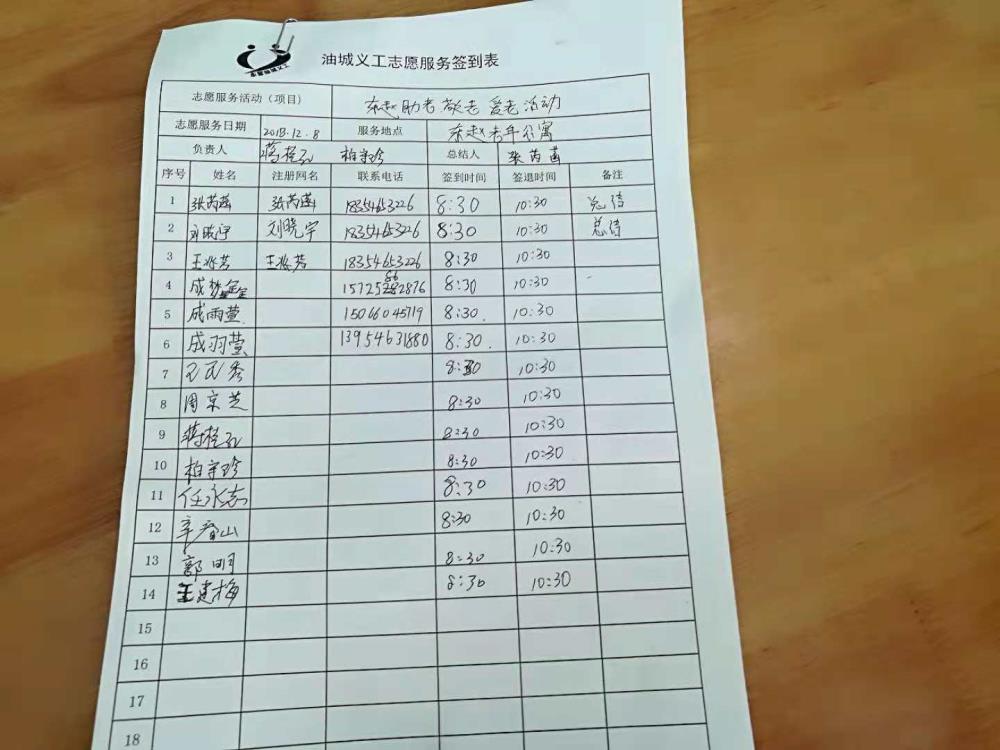 油城义工志愿服务签到表
志愿服务活动（项目） 东赵助老 敬老 爱老 活动
志愿服务日期 2018.12.8 服务地点 东赵老年公寓
负责人 蒋桂 柏宇珍 总结人 张芮菡
序号 姓名 注册网名 联系电话 签到时间 签退时间 备注
1 张芮菡 张芮菡 18354653226 8:30 10:30
2 刘晓宇 刘晓宇 18354653226 8:30 10:30
3 王 芳 王 芳 18354653226 8:30 10:30
4 成梦 15725 2876 8:30 10:30
5 成雨萱 15066045719 8:30 10:30
6 成羽萱 13954631880 8:30 10:30
7 王民秀 8:30 10:30
8 周京芝 8:30 10:30
9 蒋桂 8:30 10:30
10 柏宇珍 8:30 10:30
11 任永志 8:30 10:30
12 辛春山 8:30 10:30
13 郭明 8:30 10:30
14 王建梅 8:30 10:30
15
16
17
18